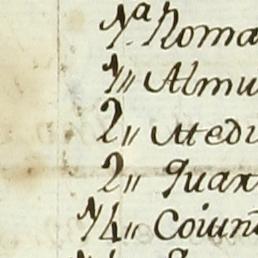 1ª Roma
1〃 Almu
2〃 Medi
2〃 Quar
1/4〃 Coiun